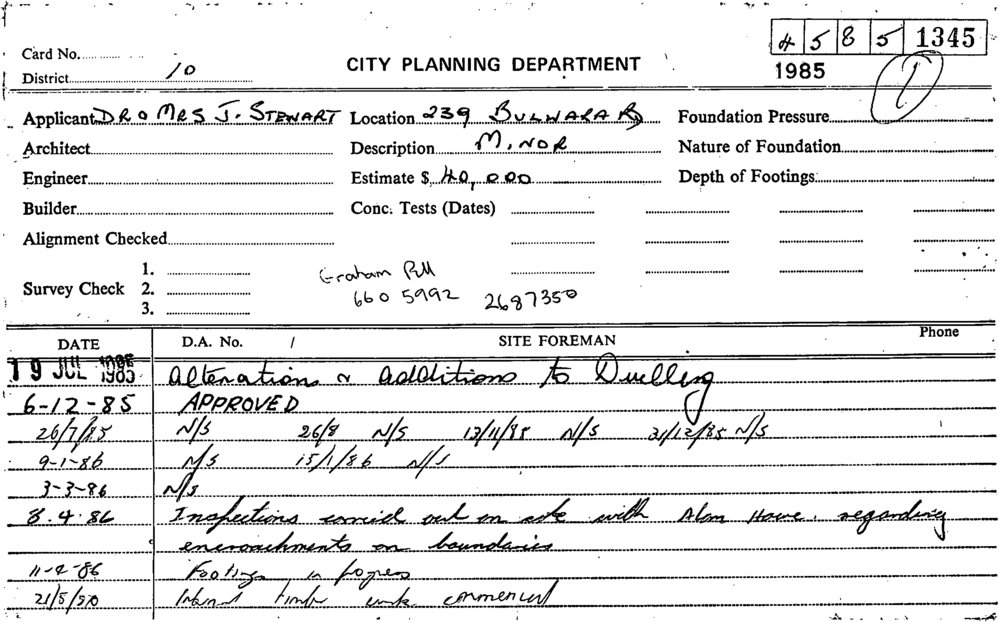 4 5 8 5 1345
Card No.
CITY PLANNING DEPARTMENT
1985
1
District 10
Applicant DR & MRS J. STEWART Location 239 BULWARA RD Foundation Pressure
Architect Description MINOR Nature of Foundation
Engineer Estimate $ 40,000 Depth of Footings:
Builder Conc. Tests (Dates)
Alignment Checked
1.
Survey Check 2.
3.
Graham
660 5992 2687350
DATE D.A. No. / SITE FOREMAN Phone
19 JUL 1985 Alterations & additions to Dwelling
6-12-85 APPROVED
26/7/85 N/S 26/8 N/S 13/11/85 N/S 31/12/85 N/S
9-1-86 N/S 15/1/86 N/S
3-3-86 N/S
8.4.86 Inspections carried out on site with Alan Howe. regarding
encroachments on boundaries
11-4-86 Footings in progress
21/5/ Internal timber work commenced